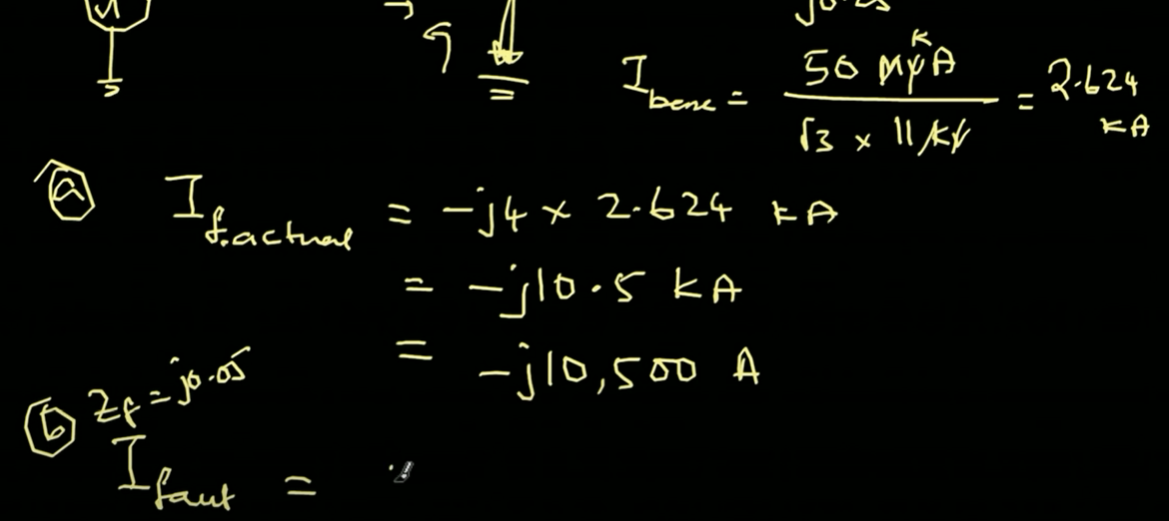 I base = 50 MVA / √3 × 11 kV = 2.624 kA
K
ⓐ I f.actual = -j4 × 2.624 kA
= -j10.5 kA
= -j10,500 A
ⓑ Zf = j0.05
I faut =